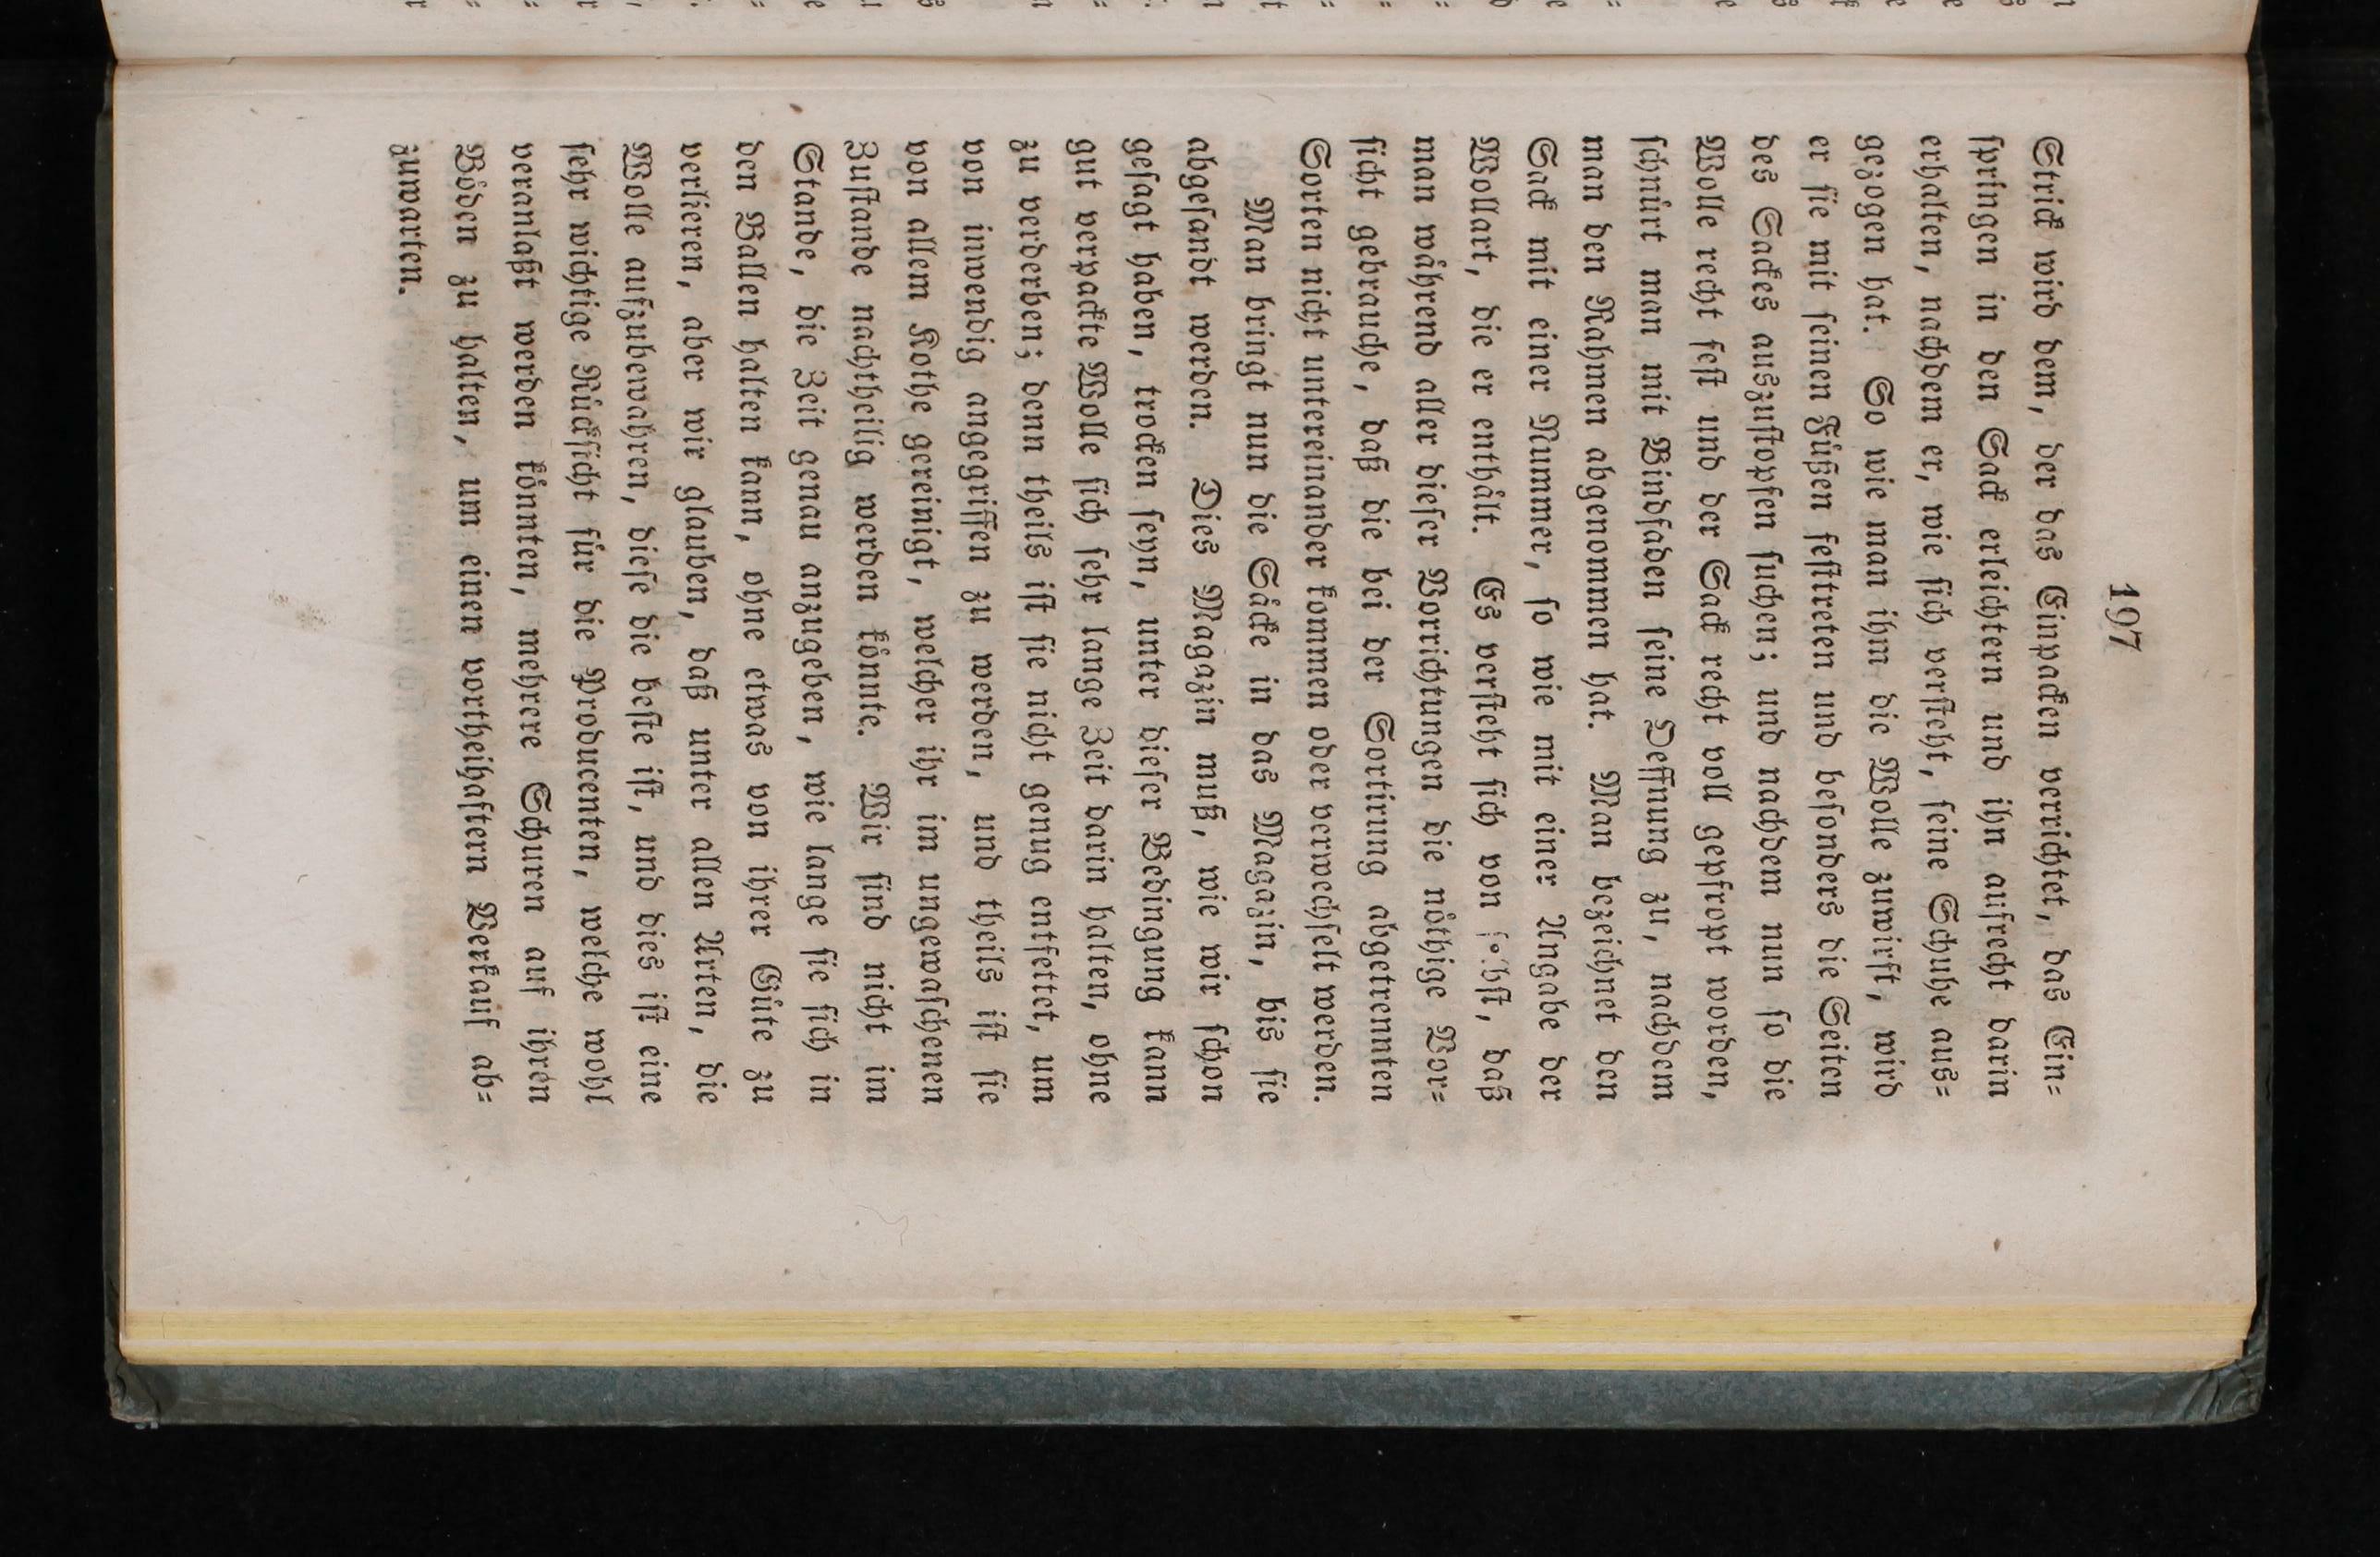 197
Strick wird dem, der das Einpacken verrichtet, das Ein=
springen in den Sack erleichtern und ihn aufrecht darin
erhalten, nachdem er, wie sich versteht, seine Schuhe aus=
gezogen hat. So wie man ihm die Wolle zuwirft, wird
er sie mit seinen Füßen festtreten und besonders die Seiten
des Sackes auszustopfen suchen; und nachdem nun so die
Wolle recht fest und der Sack recht voll gepfropt worden,
schnürt man mit Bindfaden seine Oeffnung zu, nachdem
man den Rahmen abgenommen hat. Man bezeichnet den
Sack mit einer Nummer, so wie mit einer Angabe der
Wollart, die er enthält. Es versteht sich von daß
man während aller dieser Vorrichtungen die nöthige Vor=
sicht gebrauche, daß die bei der Sortirung abgetrennten
Sorten nicht untereinander kommen oder verwechselt werden.
Man bringt nun die Säcke in das Magazin, bis sie
abgesandt werden. Dies Magazin muß, wie wir schon
gesagt haben, trocken seyn, unter dieser Bedingung kann
gut verpackte Wolle sich sehr lange Zeit darin halten, ohne
zu verderben; denn theils ist sie nicht genug entfettet, um
von inwendig angegriffen zu werden, und theils ist sie
von allem Kothe gereinigt, welcher ihr im ungewaschenen
Zustande nachtheilig werden könnte. Wir sind nicht im
Stande, die Zeit genau anzugeben, wie lange sie sich in
den Ballen halten kann, ohne etwas von ihrer Güte zu
verlieren, aber wir glauben, daß unter allen Arten, die
Wolle aufzubewahren, diese die beste ist, und dies ist eine
sehr wichtige Rücksicht für die Producenten, welche wohl
veranlaßt werden könnten, mehrere Schuren auf ihren
Böden zu halten, um einen vortheilhaftern Verkauf ab=
zuwarten.